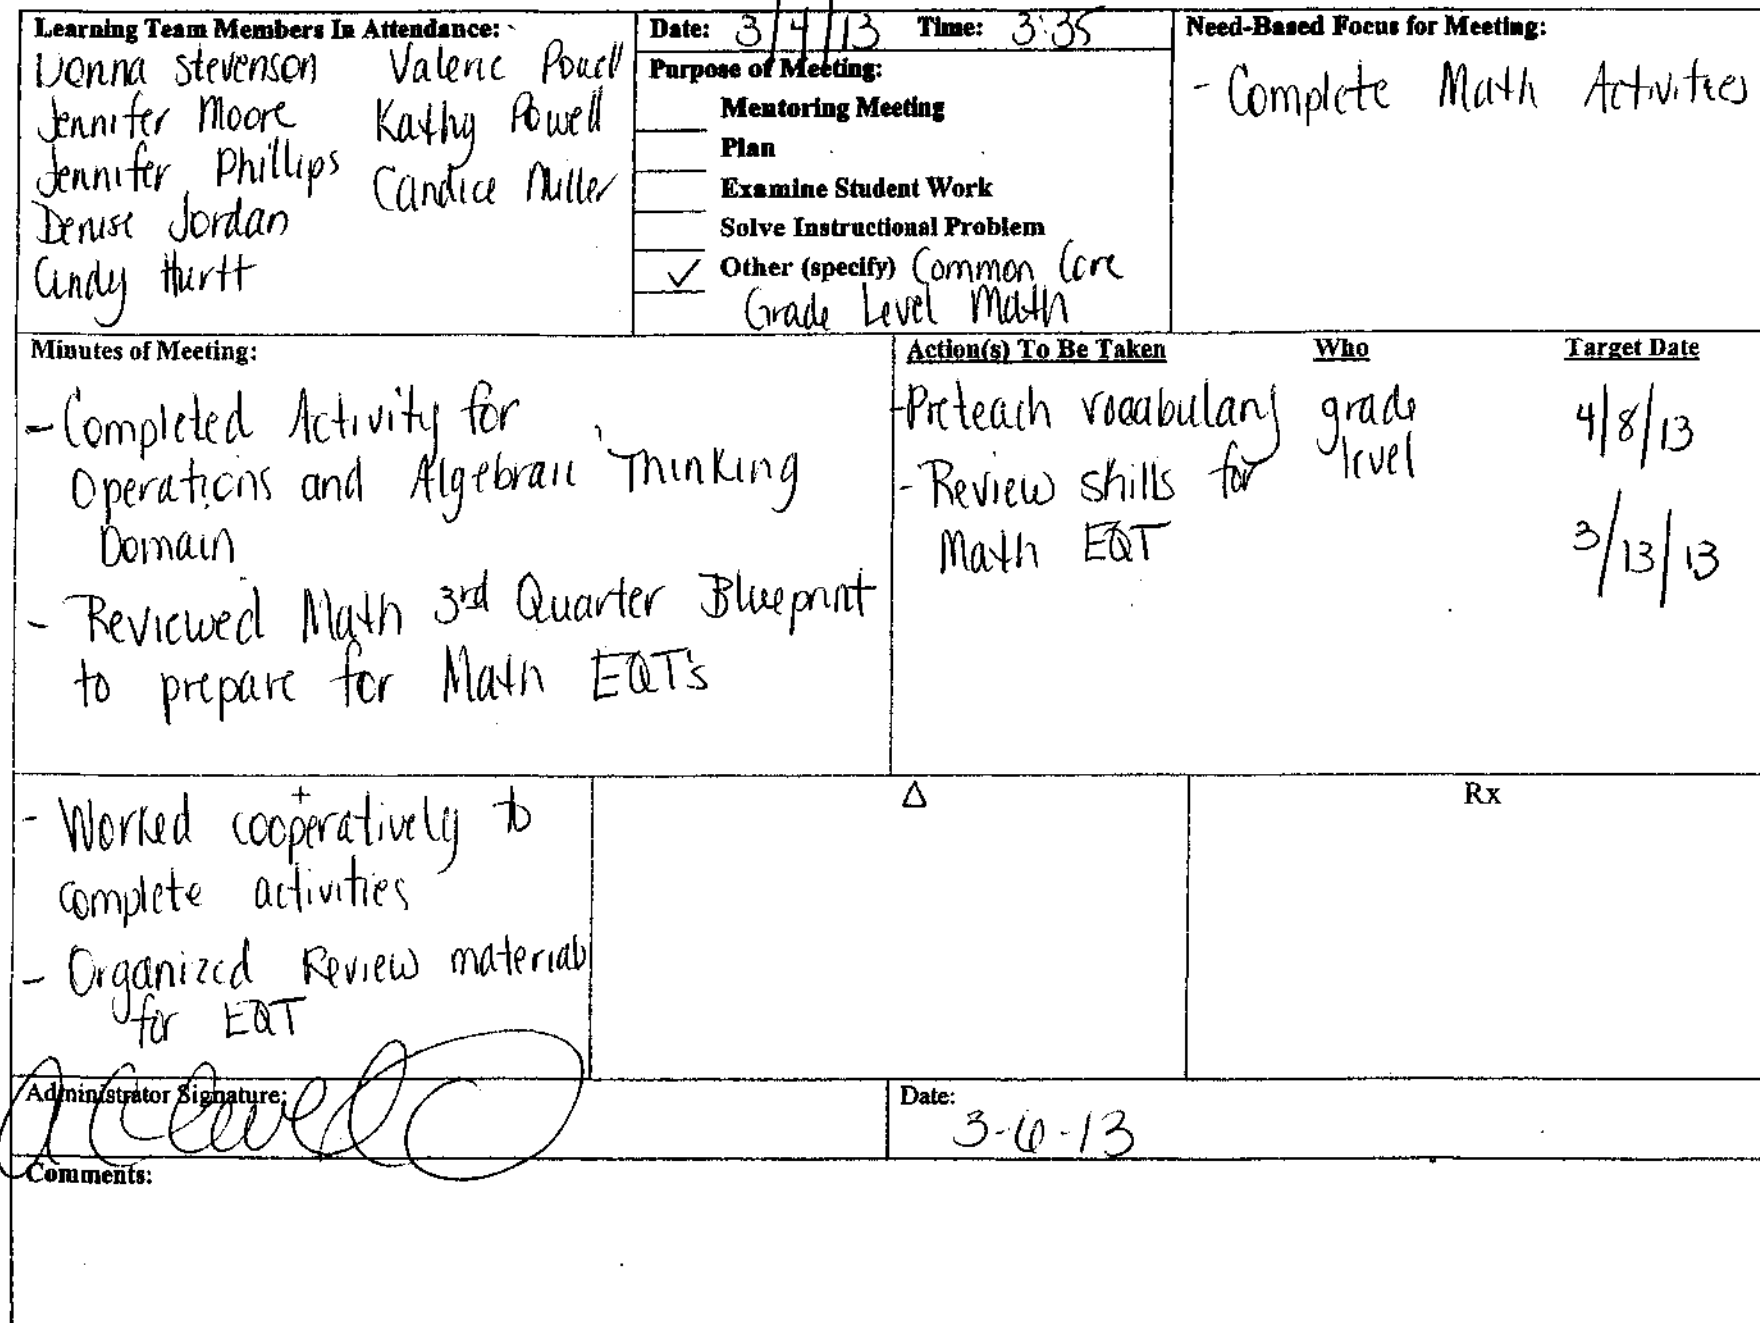 Learning Team Members In Attendance:
Donna Stevenson Valerie Powell
Jennifer Moore Kathy Powell
Jennifer Phillips Candice Miller
Denise Jordan
Cindy Hurtt
Date: 3/4/13 Time: 3:35
Purpose of Meeting:
Mentoring Meeting
Plan
Examine Student Work
Solve Instructional Problem
✓ Other (specify) Common Core
Grade Level Math
Need-Based Focus for Meeting:
- Complete Math Activities
Minutes of Meeting:
- Completed Activity for
Operations and Algebraic Thinking
Domain
- Reviewed Math 3rd Quarter Blueprint
to prepare for Math EQT's
Action(s) To Be Taken Who Target Date
- Preteach vocabulary grade level 4/8/13
- Review skills for
Math EQT 3/13/13
+
- Worked cooperatively to
complete activities
- Organized Review materials
for EQT
Δ
Rx
Administrator Signature:
Date:
3-6-13
Comments: